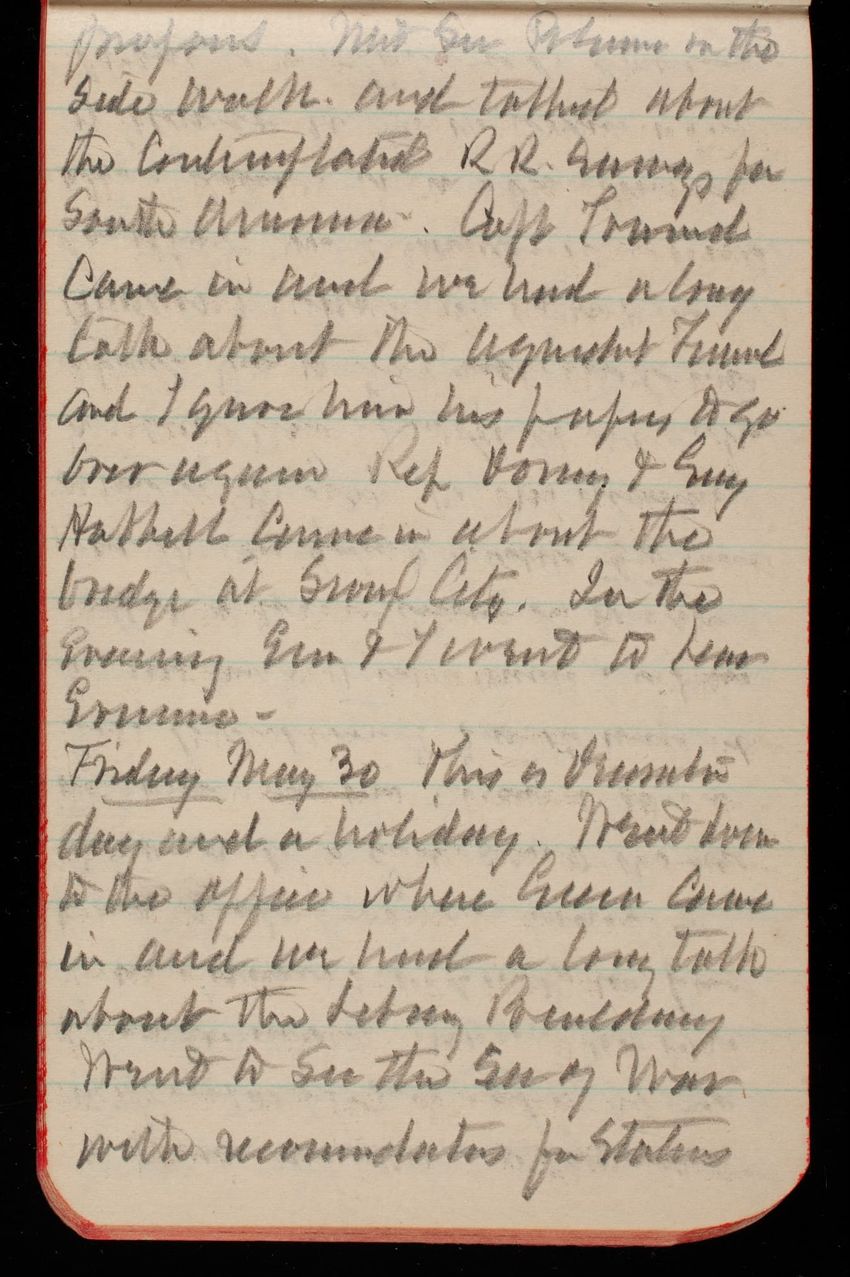 propons. Met Gen in the
side walk. and talked about
the Contemplated R R. Survey for
South America. Capt
Came in and we had a long
talk about the aqueduct Tunnel
and I gave him his papers to go
over again Rep Dorsey & Guy
Came in about the
bridge at Sioux City. In the
Evening Em & I went to hear
Friday May 30 This is Decoration
day and a holiday. Went down
to the office where Green Came
in and we had a long talk
about the Library Building
Went to See the Sec of War
with recomdations for Stations